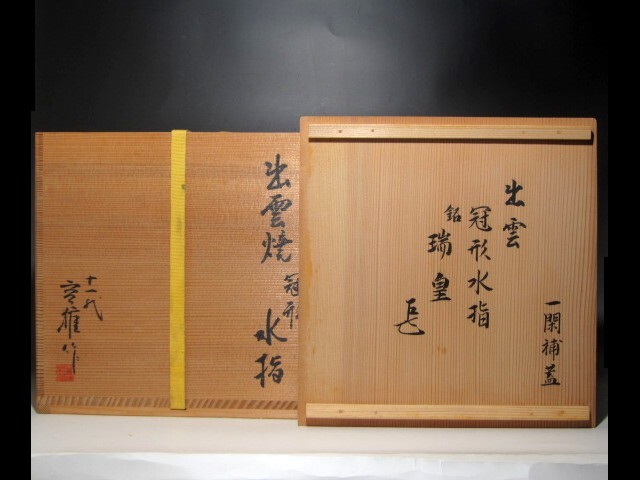 出雲
冠形水指
銘 瑞皇
一閑補蓋
出雲焼
冠形
水指
十一代
空権作